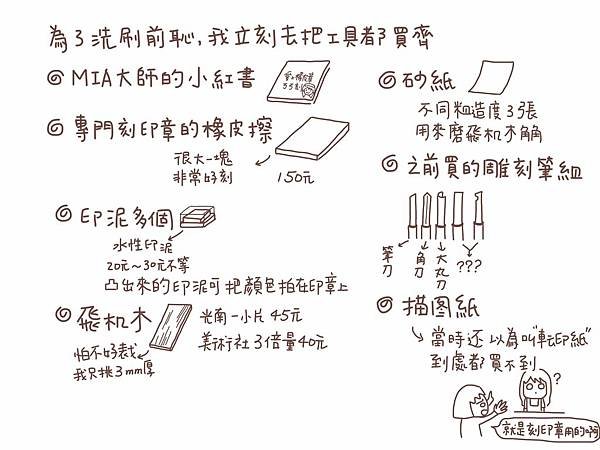 為了洗刷前恥,我立刻去把工具都買齊
MIA大師的小紅書
專門刻印章的橡皮擦
很大一塊
非常好刻
150元
印泥多個
水性印泥
20元~30元不等
凸出來的印泥可把顏色拍在印章上
飛机木
光南一小片45元
美術社3倍量40元
怕不好裁
我只挑3mm厚
砂紙
不同粗造度3張
用來磨飛机木角角
之前買的雕刻筆組
筆刀
角刀
大丸刀
???
描図紙
當時还以為叫"転印紙"
到處都買不到
?
就是刻印章用的啊